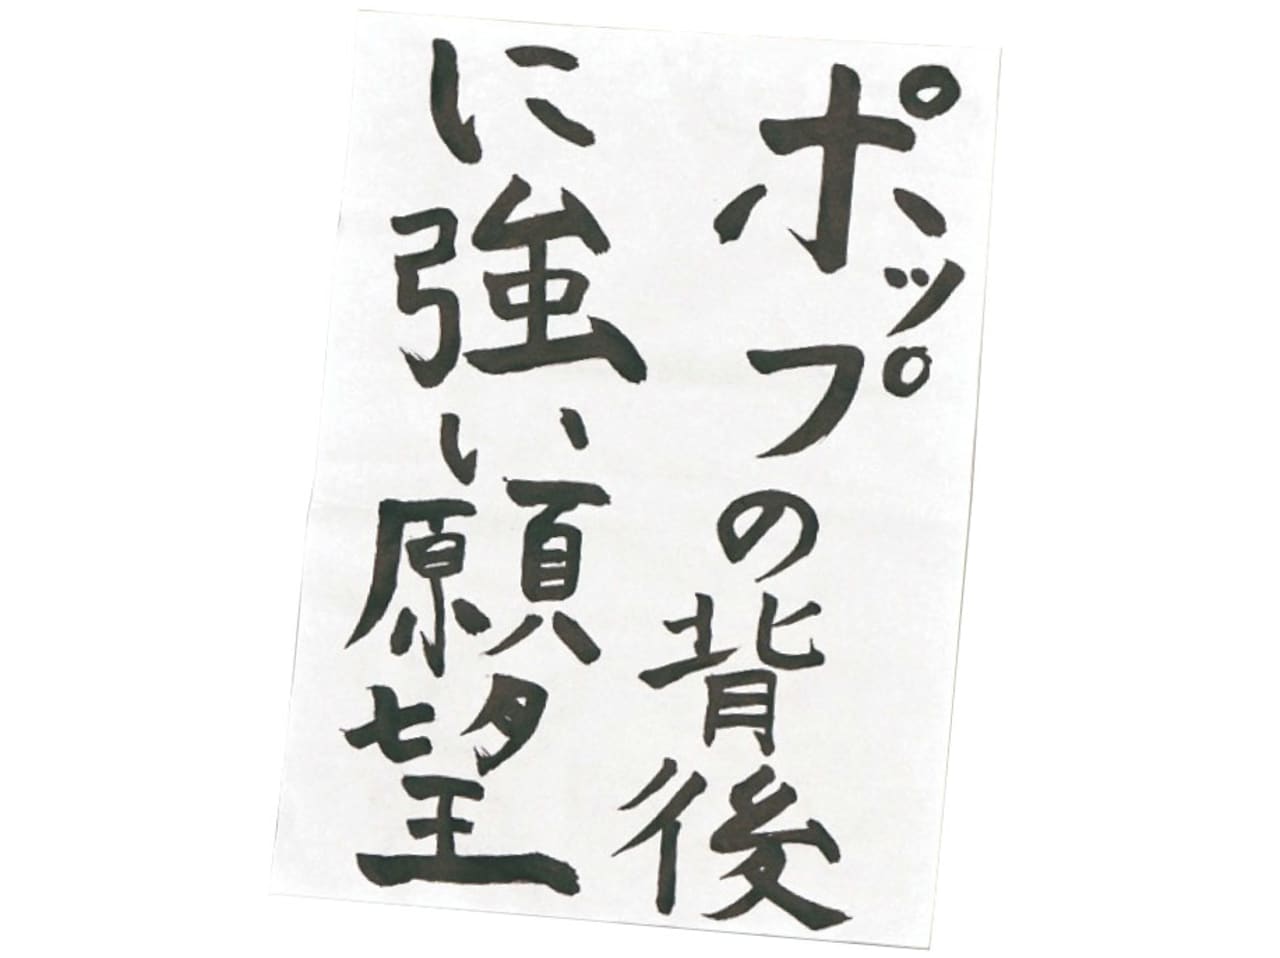 ポップの背後
に強い願望